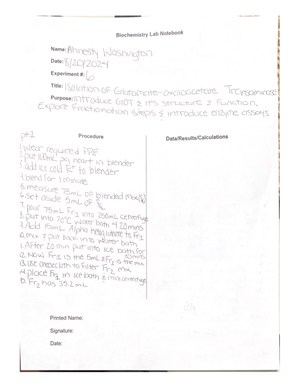 Biochemistry Lab Notebook
Name: Amnesty Washington
Date: 8/20/2024
Experiment #: 6
Title: Isolation of Glutamate-Oxaloacetate Transaminase
Purpose: Introduce GOT & it's structure & function,
Explore Fractionation steps & introduce enzyme assays
pt 2
Procedure
Data/Results/Calculations
1. Wear required PPE
2. put 100mL pig heart in blender
3. add ice cold to blender
4. blend for 1 minute
5. measure 75mL of blended mix
6. Set aside 5mL of
7. pour 75mL Fr1 into 250mL centrifuge
8. put into 70°C water bath 4 20mins
9. Add 15mL Alpha ketoglutarate to Fr1
mix & put back into water bath
After 20 min put into ice bath for
Now Fr1 is the 5mL & Fr2 is the mix
Use cheesecloth to filter Fr2 mix
place Fr2 in ice bath &
Fr2 has 35.2mL
Printed Name:
Signature:
Date: